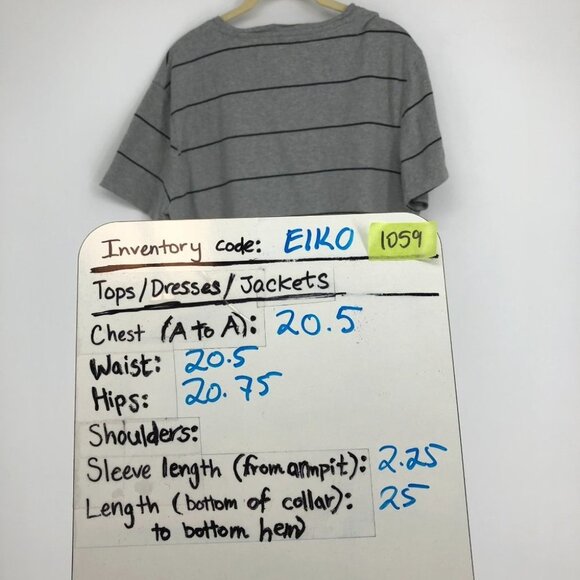 Inventory code: EIKO 1059
Tops/Dresses/Jackets
Chest (A to A): 20.5
Waist: 20.5
Hips: 20.75
Shoulders:
Sleeve length (from armpit): 2.25
Length (bottom of collar): 25
to bottom hem)